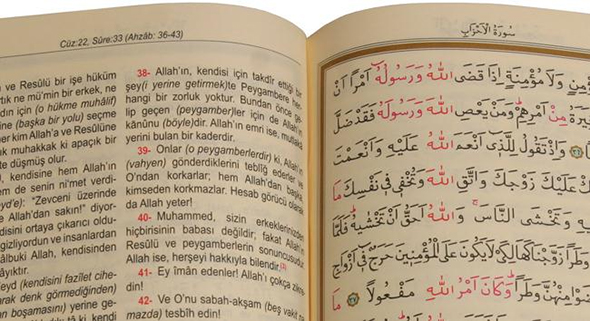 Cüz:22, Sûre:33 (Ahzâb: 36-43)
ve Resûlü bir işe hüküm
tık ne mü'min bir erkek, ne
dın için (o hükme muhâlif)
ine (başka bir yolu) seçme
er kim Allah'a ve Resûlüne
k muhakkak ki apaçık bir
te düşmüş olur.
, kendisine hem Allah'ın
em de senin ni'met verdi-
eyd'e): "Zevceni üzerinde
e Allah'dan sakın!" diyor-
disini ortaya çıkarıcı oldu-
gizliyordun ve insanlardan
lbuki Allah, kendisinden
âyıktır.
eyd (kendisini fazîlet cihe-
arak denk görmediğinden)
an boşamasını) yerine ge-
38- Allah'ın, kendisi için takdîr ettiği bir
şey(i yerine getirmek)te Peygambere her-
hangi bir zorluk yoktur. Bundan önce ge-
lip geçen (peygamber)ler için de Allah'ın
kānûnu (böyle)dir. Allah'ın emri ise, mutlaka
yerini bulan bir kaderdir.
39- Onlar (o peygamberlerdir) ki, Allah'ın
(vahyen) gönderdiklerini tebliğ ederler ve
O'ndan korkarlar; hem Allah'dan başka
kimseden korkmazlar. Hesab görücü olarak
da Allah yeter!
40- Muhammed, sizin erkeklerinizden
hiçbirisinin babası değildir; fakat Allah'ın
Resûlü ve peygamberlerin sonuncusudur.
Allah ise, herşeyi hakkıyla bilendir.
41- Ey îmân edenler! Allah'ı çokça zikre-
din!
42- Ve O'nu sabah-akşam (beş vakit na-
mazda) tesbîh edin!
سُورَةُ الْاَحْزَابِ
وَلَا مُؤْمِنَةٍ اِذَا قَضَى اللّٰهُ وَرَسُولُهُٓ اَمْرًا اَنْ
مِنْ اَمْرِهِمْ وَمَنْ يَعْصِ اللّٰهَ وَرَسُولَهُ فَقَدْ ضَلَّ
وَاِذْ تَقُولُ لِلَّذ۪ٓي اَنْعَمَ اللّٰهُ عَلَيْهِ وَاَنْعَمْتَ
عَلَيْكَ زَوْجَكَ وَاتَّقِ اللّٰهَ وَتُخْف۪ي ف۪ي نَفْسِكَ مَا
وَتَخْشَى النَّاسَ وَاللّٰهُ اَحَقُّ اَنْ تَخْشٰيهُ فَلَمَّا
وَطَرًا زَوَّجْنَاكَهَا لِكَيْ لَا يَكُونَ عَلَى الْمُؤْمِن۪ينَ حَرَجٌ ف۪ٓي اَزْوَاجِ
مِنْهُنَّ وَطَرًا وَكَانَ اَمْرُ اللّٰهِ مَفْعُولًا مَا